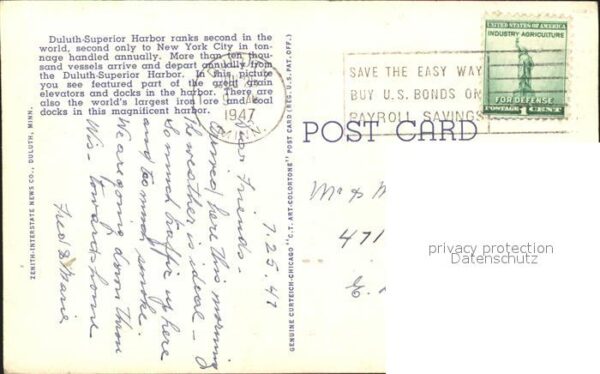 Duluth-Superior Harbor ranks second in the
world, second only to New York City in ton-
nage handled annually. More than ten thou-
sand vessels arrive and depart annually from
the Duluth-Superior Harbor. In this picture
you see featured part of the great grain
elevators and docks in the harbor. There are
also the world's largest iron ore and coal
docks in this magnificent harbor.
1947
SAVE THE EASY WAY
BUY U.S. BONDS ON
PAYROLL SAVINGS
UNITED STATES OF AMERICA
INDUSTRY AGRICULTURE
FOR DEFENSE
POSTAGE 1 CENT
POST CARD
ZENITH-INTERSTATE NEWS CO., DULUTH, MINN.
7.25.47
Dear Friends -
Arrived here this morning
The weather is ideal -
so much traffic up here
and too much smoke.
We are going down thru
Wis - towards home
Fred & Marie
GENUINE CURTEICH-CHICAGO "C.T. ART-COLORTONE" POST CARD (REG. U.S. PAT. OFF.)
Mr & M
471
E.
privacy protection
Datenschutz